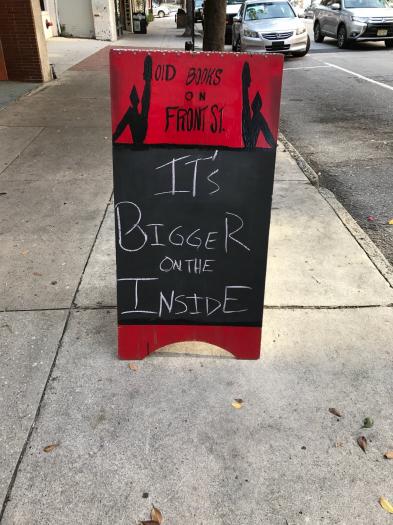 OLD BOOKS
ON
FRONT ST.
IT'S
BIGGER
ON THE
INSIDE